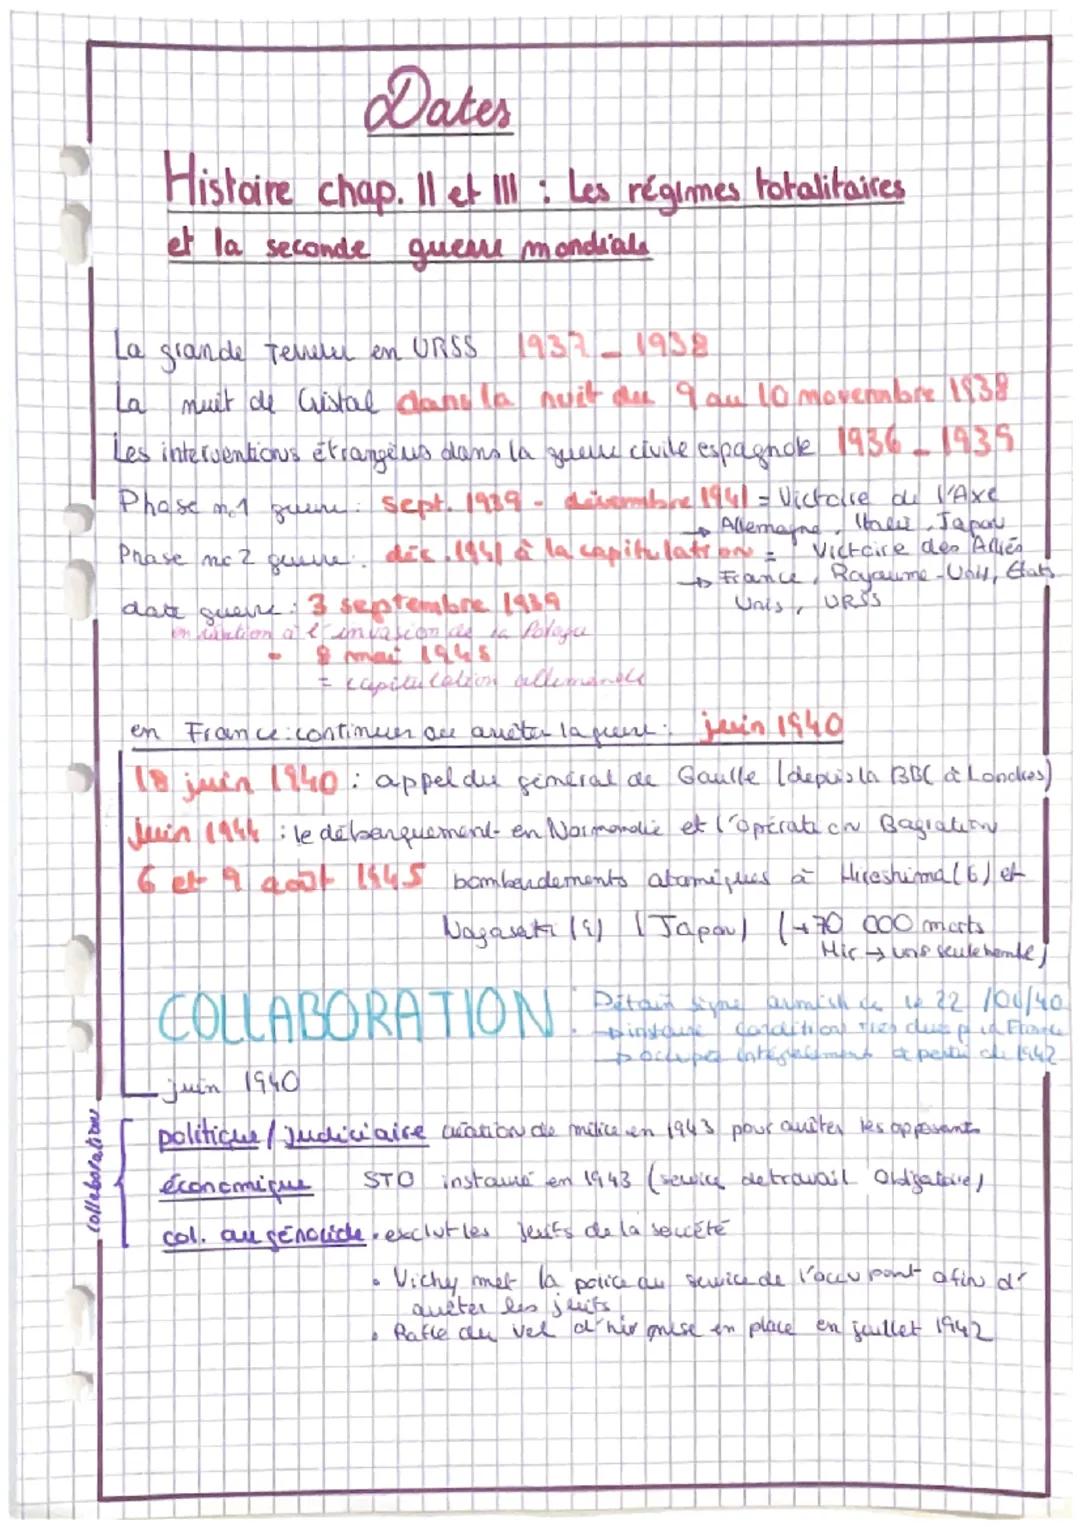 Dates
Histoire chap. II et III : Les régimes totalitaires
et la seconde guerre mondiale
La grande Terreur en URSS 1937 - 1938
La nuit de Cristal dans la nuit du 9 au 10 novembre 1938
Les interventions étrangères dans la guerre civile espagnole 1936 - 1939
Phase n.1 guerre : sept. 1939 - décembre 1941 = Victoire de l'Axe
→ Allemagne, Italie, Japon
Phase n°2 guerre : déc. 1941 à la capitulation = Victoire des Alliés
→ France, Royaume-Uni, États
Unis, URSS
date guerre : 3 septembre 1939
en réaction à l'invasion de la Pologne
- 8 mai 1945
= capitulation allemande
en France : continuer ou arrêter la guerre : juin 1940
18 juin 1940 : appel du général de Gaulle (depuis la BBC à Londres)
Juin 1944 : le débarquement en Normandie et l'Opération Bagration
6 et 9 août 1945 bombardements atomiques à Hiroshima (6) et
Nagasaki (9) (Japon) (→ 70 000 morts
Hir → une seule bombe)
COLLABORATION : Pétain signe armistice le 22 /06/40
→ instaure condition très dures p la France
→ occupée intégralement à partir de 1942
juin 1940
collaboration
politique / judiciaire création de milice en 1943 pour arrêter les opposants
économique STO instauré en 1943 (service de travail Obligatoire)
col. au génocide • exclut les juifs de la société
• Vichy met la police au service de l'occupant afin d'
arrêter les juifs
• Rafle du vel d'hiv mise en place en juillet 1942